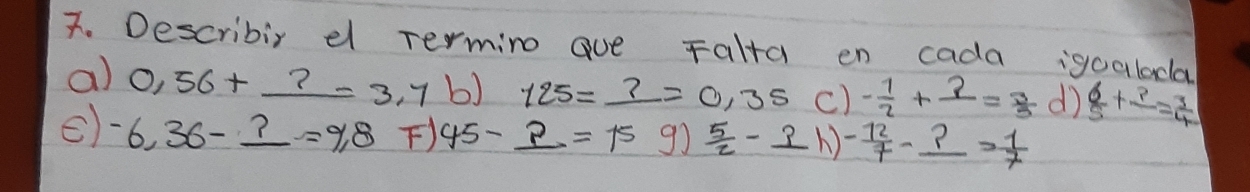 7. Describir el Termino que Falta en cada igualada
a) 0,56 + ? = 3,7 b) 125 = ? = 0,35 c) -1/2 + ? = d) + ? = 3/4
e) -6,36 - ? = 9,8 F) 45 - ? = 15 g) 5/2 - ? h) -12/7 - ? = 1/7